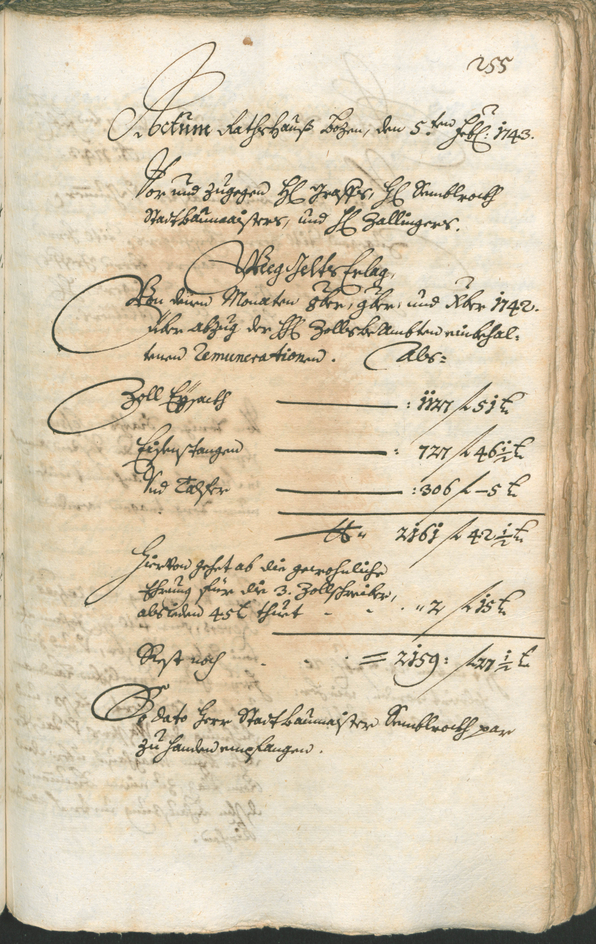 255
Actum Rathshauß Bozen, den 5.ten Feb: 1743.
Vor und zugegen H Graffs, H Semblrockh
Stattbaumaisters, und H Zallingers.
Weeg Gelts Erlag,
Von denen Monaten 8ber, 9ber, und Xber 1742.
über abzug der H Zollsbeambten einbehal-
tenen remunerationen. Als:
Zoll Eysackh : 1127 f 51 k
Eisenstangen : 727 f 46 1/2 k
Und Talfer : 306 f - 5 k
2161 f 42 1/2 k
Hiervon gehet ab die gewohnliche
Ehrung für die 3. Zollschreiber,
ab ieden 45 k thuet " 2 f 15 k
Rest noch = 2159: f 27 1/2 k
So dato Herr Stattbaumaister Semblrockh par
zu handen empfangen.